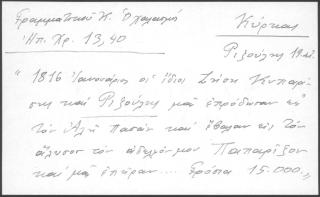 Γραμματικού Κ. Ο χαλασμός
Ηπ. Χρ. 13, 40
Κύρκας
Ριζούλης
" 1816 Ιανουάριος οι ίδιοι Κυπαρί-
σης και Ριζούλης μας επρόδωσαν εις
τον Αλή Πασάν και έβαλαν εις τον
άλυσον τον αδελφόν μου Παπαρίζον
και μας επήραν.... Γρόσια 15.000 „